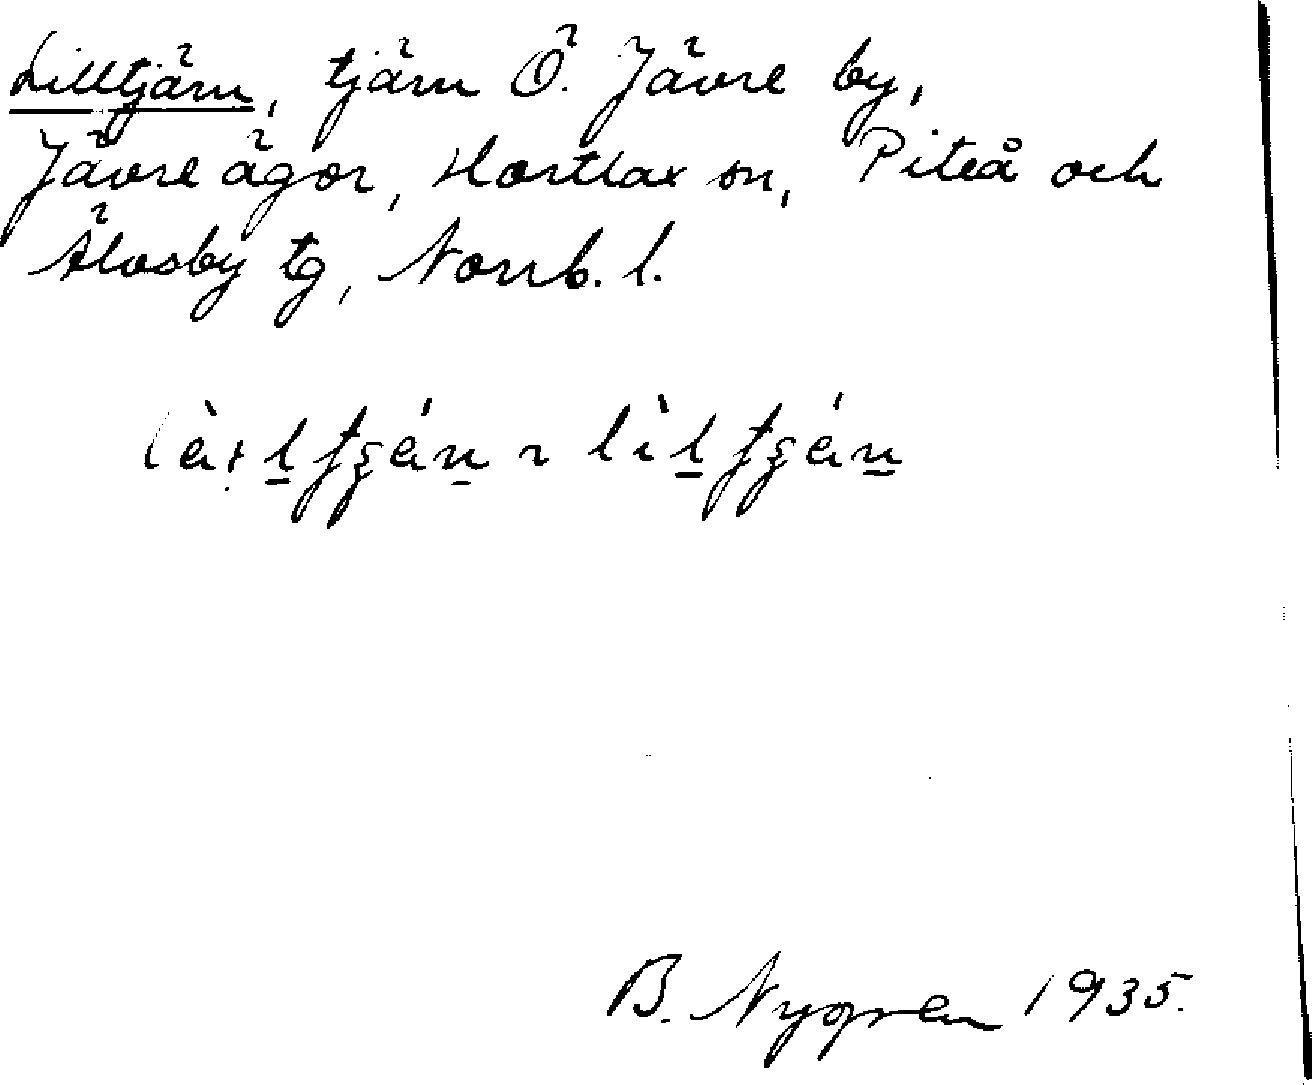 Lilltjärn, tjärn Ö. Jävre by,
Jävre ägor, Hortlax sn, Piteå och
Älvsby tg, Norrb. l.
B. Nygren 1935.